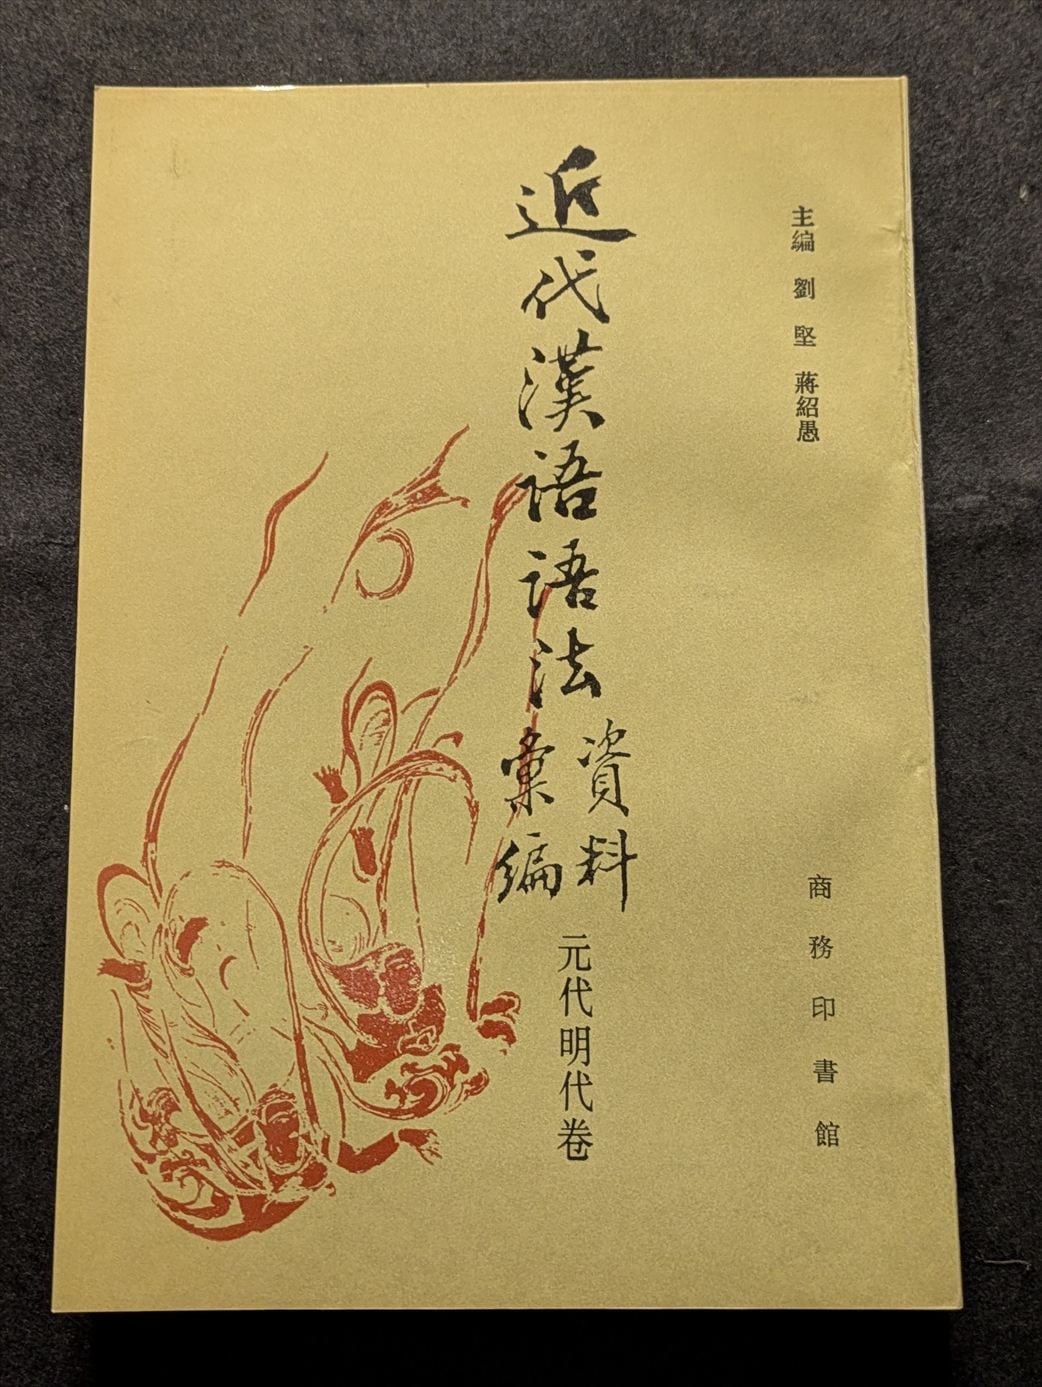 主編 劉 堅 蔣紹愚
近代漢語語法資料彙編
元代明代卷
商務印書館